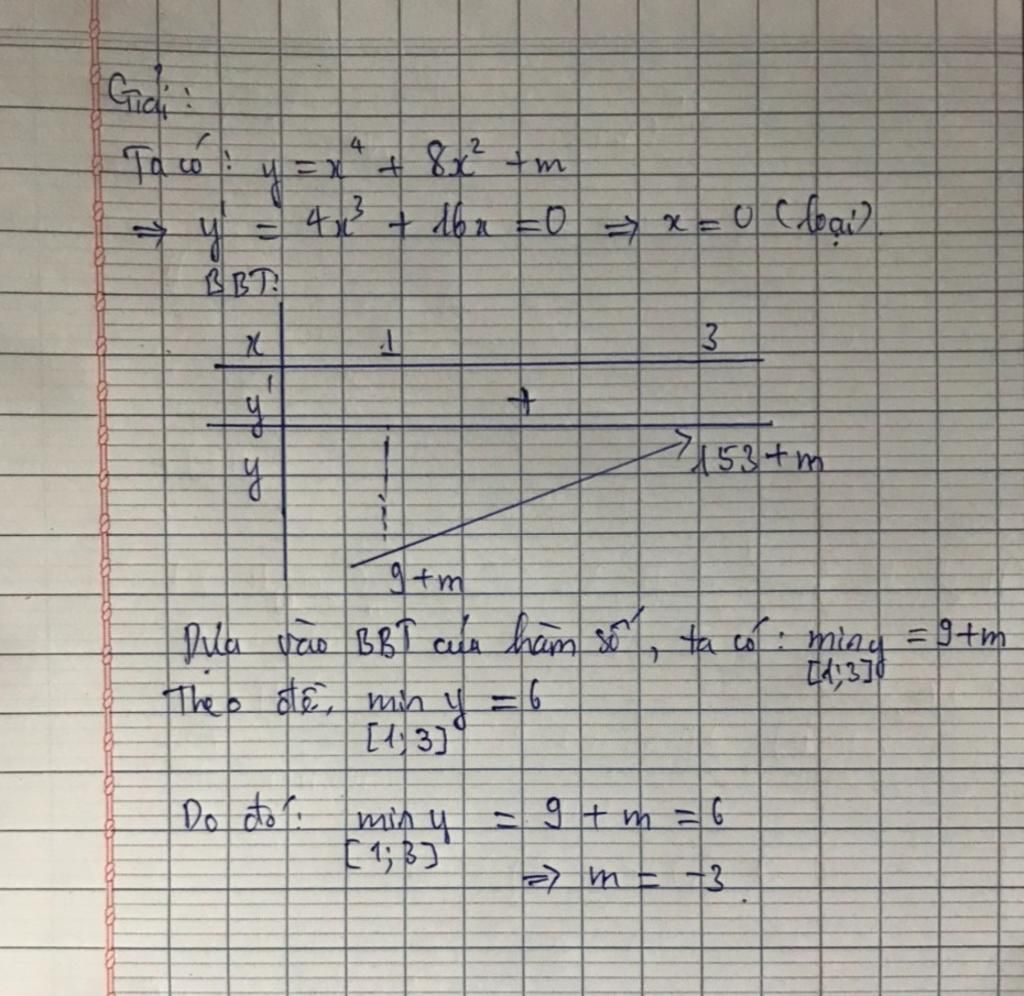 Giải:
Ta có: y = x⁴ + 8x² + m
⇒ y' = 4x³ + 16x = 0 ⇒ x = 0 (loại).
BBT:
x 1 3
y' +
y 153 + m
9 + m
Dựa vào BBT của hàm số, ta có: min y = 9 + m
[1;3]
Theo đề, min y = 6
[1;3]
Do đó: min y = 9 + m = 6
[1;3]
⇒ m = -3.